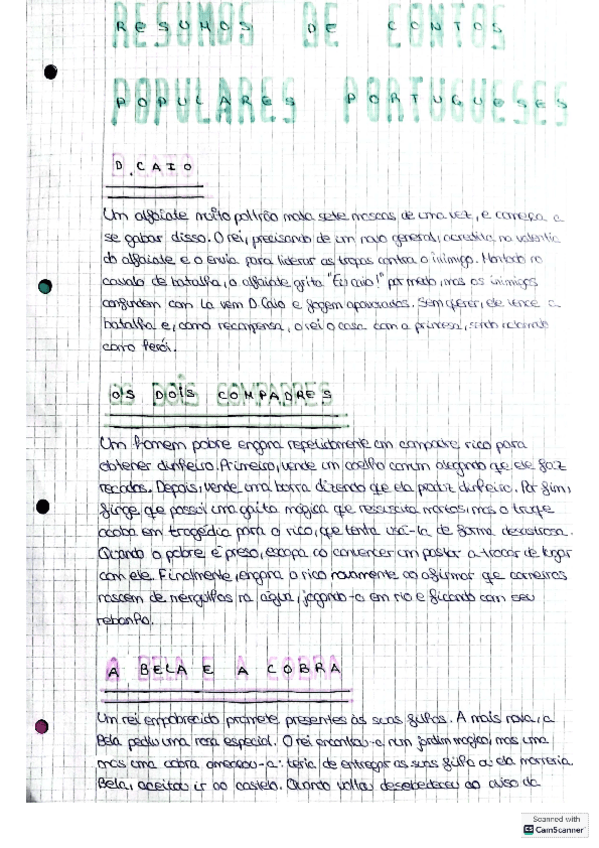 RESUMOS DE CONTOS
POPULARES PORTUGUESES
D. CAIO
Um alfaiate muito poltrão mata sete moscas de uma vez, e começa a
se gabar disso. O rei, precisando de um novo general, acredita na valentia
do alfaiate e o envia para liderar as tropas contra o inimigo. Montado no
cavalo de batalha, o alfaiate grita "Eu caio!" por medo, mas os inimigos
confundem com La vem D. Caio e fogem apavorados. Sem querer, ele vence a
batalha e, como recompensa, o rei o casa com a princesa, sendo
como herói.
OS DOIS COMPADRES
Um homem pobre engana repetidamente um compadre rico para
obtener dinheiro. Primeiro, vende um coelho comum alegando que ele faz
recados. Depois, vende uma burra dizendo que ela produz dinheiro. Por fim,
finge que possui uma gaita mágica que ressuscita mortos, mas o truque
acaba em tragédia para o rico, que tenta usá-la de forma desastrosa.
Quando o pobre é preso, escapa ao convencer um pastor a trocar de lugar
com ele. Finalmente, engana o rico novamente ao afirmar que carneiros
nascem de mergulhos na água, jogando-o em rio e ficando com seu
rebanho.
A BELA E A COBRA
Um rei empobrecido promete presentes às suas filhas. A mais nova, a
Bela pediu uma rosa especial. O rei encontrou-a num jardim mágico, mas uma
mas uma cobra ameaçou-a: teria de entregar as suas filha a ela morreria.
Bela, aceitou ir ao castelo. Quando voltou desobedeceu ao aviso da
Scanned with
CamScanner